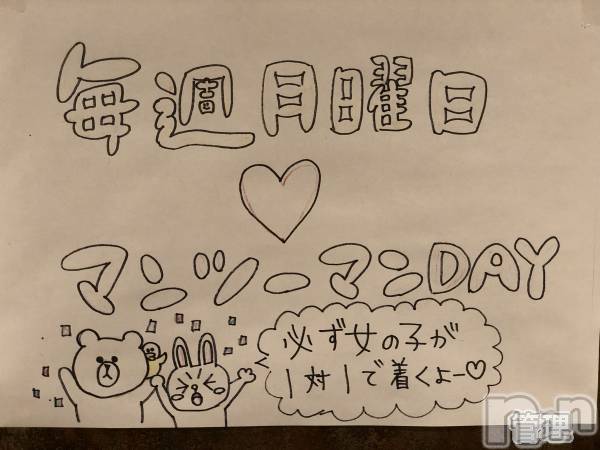 毎週月曜日
♡
マンツーマンDAY
必ず女の子が
1対1で着くよー♡
管理